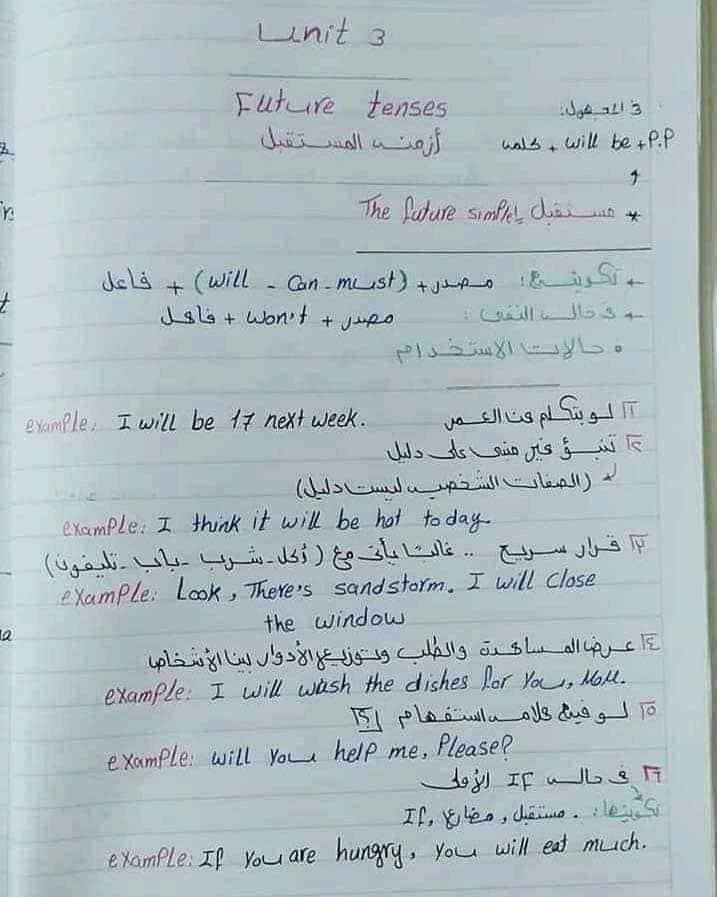 Unit 3
Future tenses
أزمنه المستقبل
فى المجهول:
كلمه + will be + P.P
* مستقبل بسيط The future simple
← تكوينه: مصدر + (will - can - must) + فاعل
← فى حاله النفى: مصدر + won't + فاعل
• حالات الاستخدام
١] لو بتكلم عن العمر
example: I will be 17 next week.
٢] تنبؤ غير مبنى على دليل
(الصفات الشخصيه ليست دليل)
example: I think it will be hot today.
٣] قرار سريع .. غالبًا يأتى مع (أكل - شرب - باب - تليفون)
example: Look, There's sandstorm. I will close
the window
٤] عرض المساعدة والطلب وتوزيع الأدوار بين الأشخاص
example: I will wash the dishes for you, Mom.
٥] لو فيه علامه استفهام [؟]
example: will you help me, Please?
٦] فى حاله If الأولى
تكوينها: مستقبل , مضارع , If
example: If you are hungry, you will eat much.